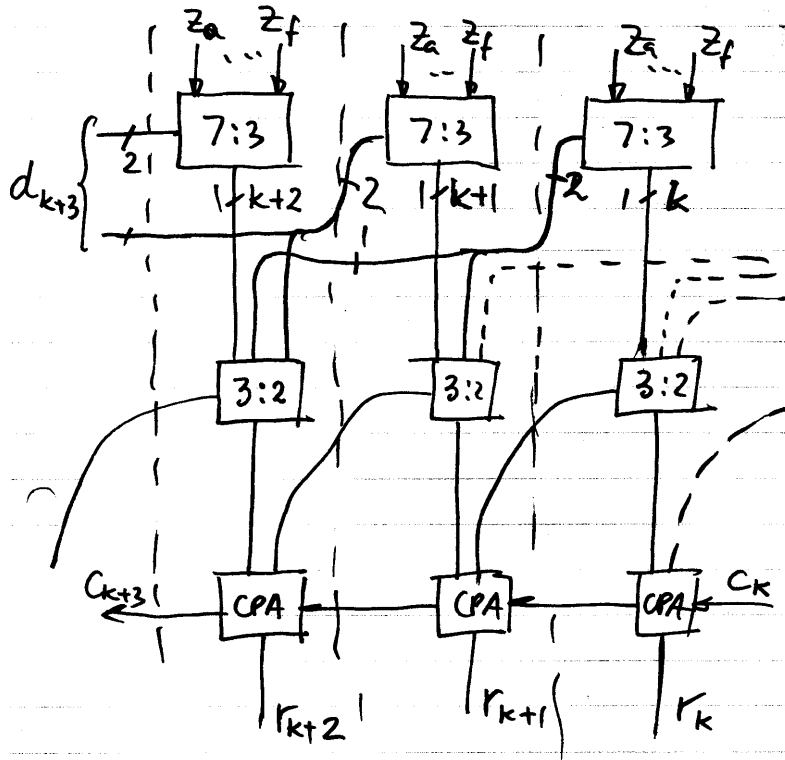 Za ... Zf Za ... Zf Za ... Zf
7:3 7:3 7:3
2
d k+3 1 k+2 2 1 k+1 2 1 k
1
3:2 3:2 3:2
C k+3 CPA CPA CPA C k
r k+2 r k+1 r k